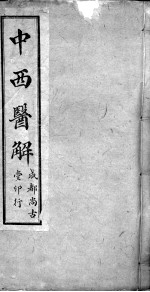 中西醫解
成都尚古
堂印行